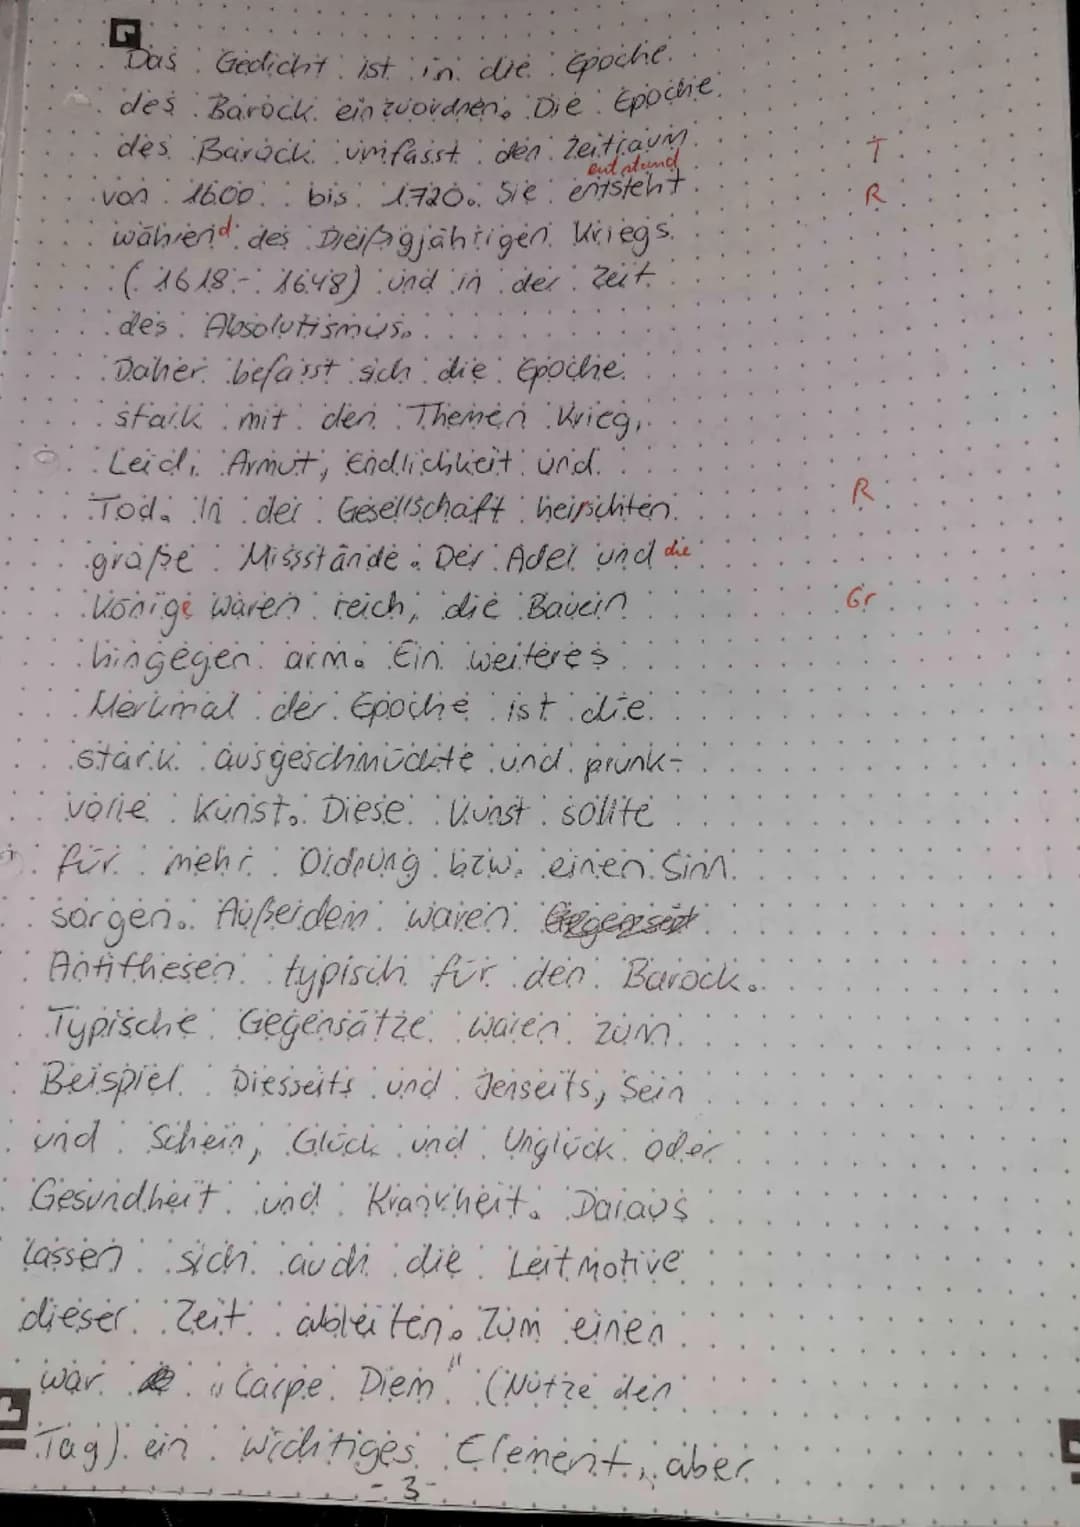 Das Gedicht ist in die Epoche
des Barock einzuordnen. Die Epoche
des Barock umfasst den Zeitraum T
entstand
von 1600 bis 1720. Sie entsteht R
während des Dreißigjährigen Kriegs
(1618 - 1648) und in der Zeit
des Absolutismus.
Daher befasst sich die Epoche
stark mit den Themen Krieg,
Leid, Armut, Endlichkeit und
Tod. In der Gesellschaft herrschten R
große Missstände. Der Adel und die
Könige waren reich, die Bauern Gr
hingegen arm. Ein weiteres
Merkmal der Epoche ist die
stark ausgeschmückte und prunk-
volle Kunst. Diese Kunst sollte
für mehr Ordnung bzw. einen Sinn
sorgen. Außerdem waren
Antithesen typisch für den Barock.
Typische Gegensätze waren zum
Beispiel Diesseits und Jenseits, Sein
und Schein, Glück und Unglück oder
Gesundheit und Krankheit. Daraus
lassen sich auch die Leitmotive
dieser Zeit ableiten. Zum einen
war „Carpe Diem" (Nutze den
Tag) ein wichtiges Element, aber
- 3 -